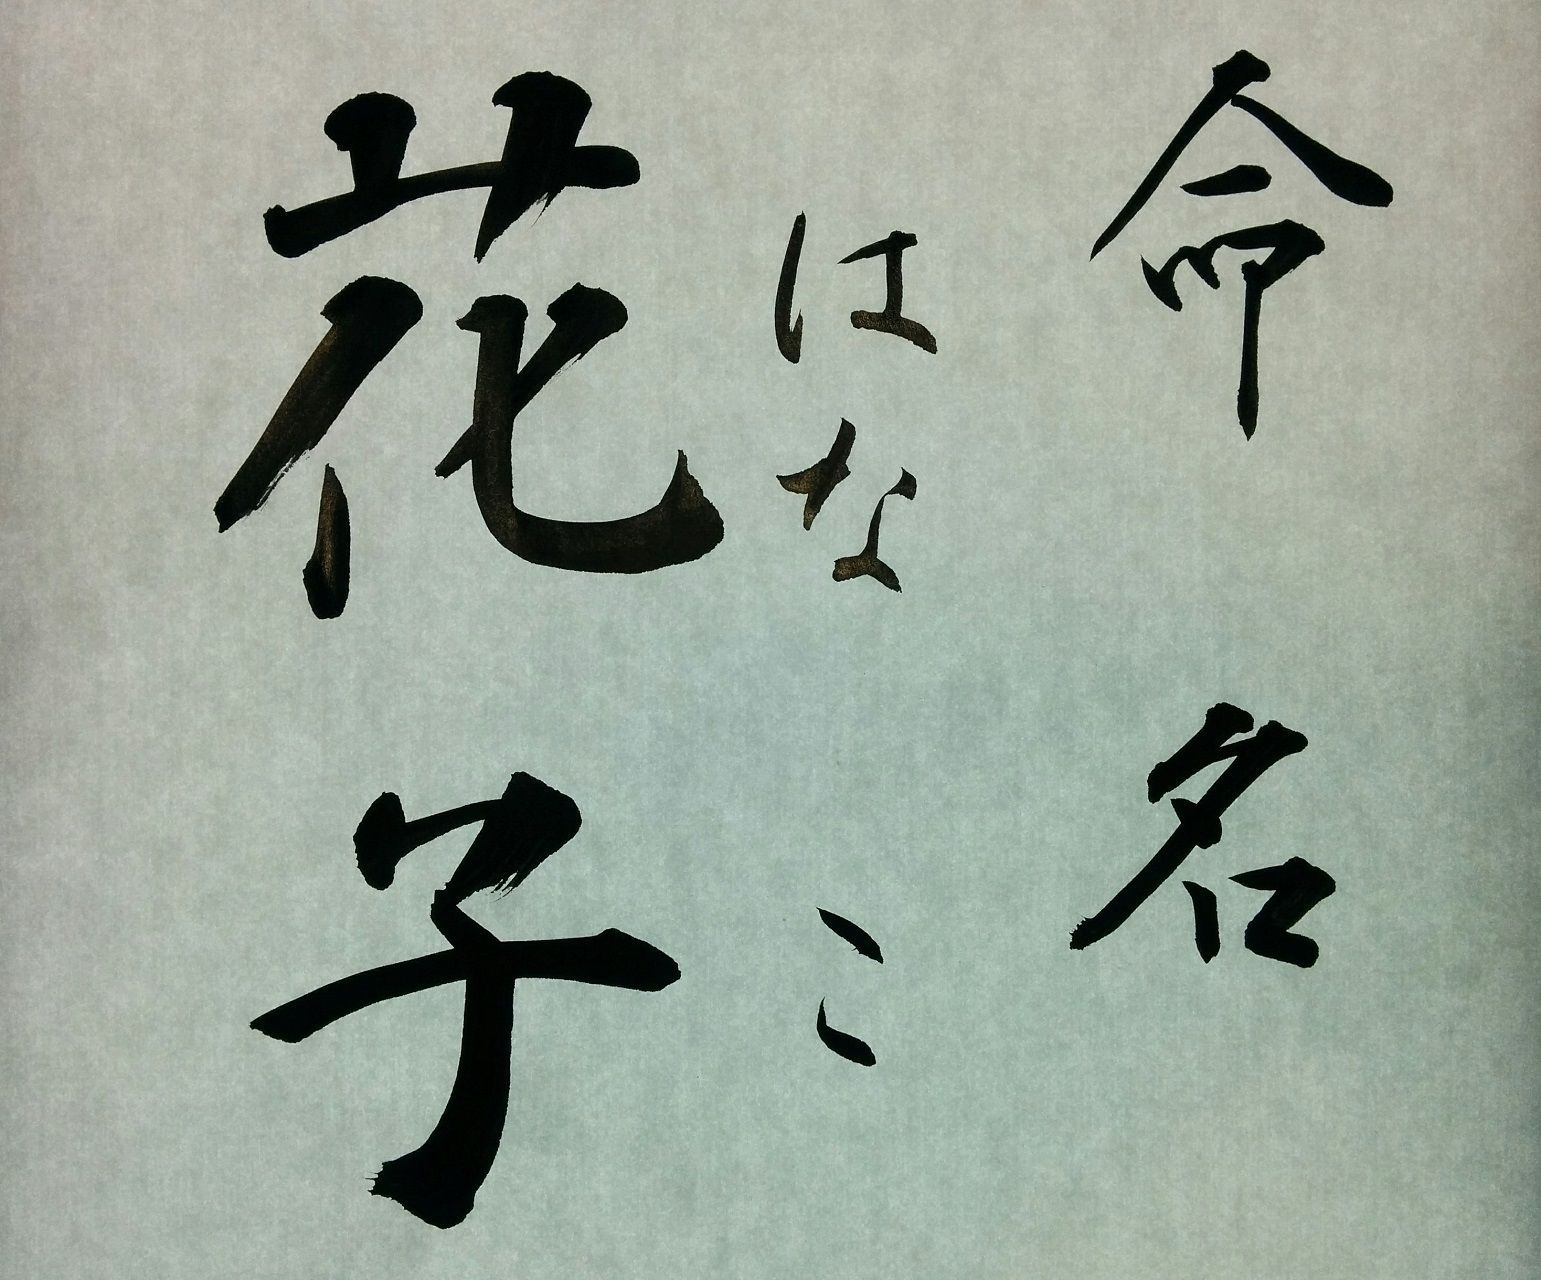 命名
はなこ
花子